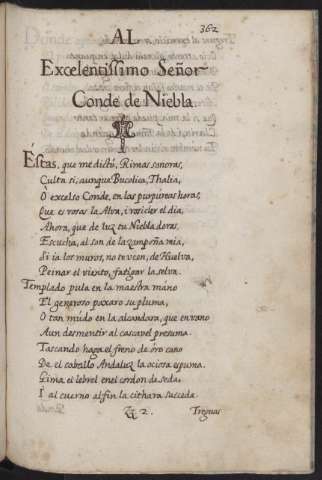 362
AL
Excelentissimo Señor
Conde de Niebla
Éstas, que me dictú, Rimas sonoras,
Culta si, aunqua Bucolica, Thalia,
Ò excelso Conde, en las purpureas horas,
Que es rosas la Alva, i rosicler el dia,
Ahora, que de luz tu Niebla doras,
Escucha, al son de la zampoña mia,
Si ia los muros, no te vcen, de Huelva,
Peinar el viento, fatigar la selva.
Templado pula en la maestra mano
El generoso paxaro su pluma,
O tan mudo en la alcandara, que en vano
Aun desmentir al cascavel presuma.
Tascando haga el freno de oro cano
De el caballo Andaluz la ociosa espuma.
Gima el lebrel en el cordon de seda.
I al cuerno al fin la cithara succeda
2.
Treguas